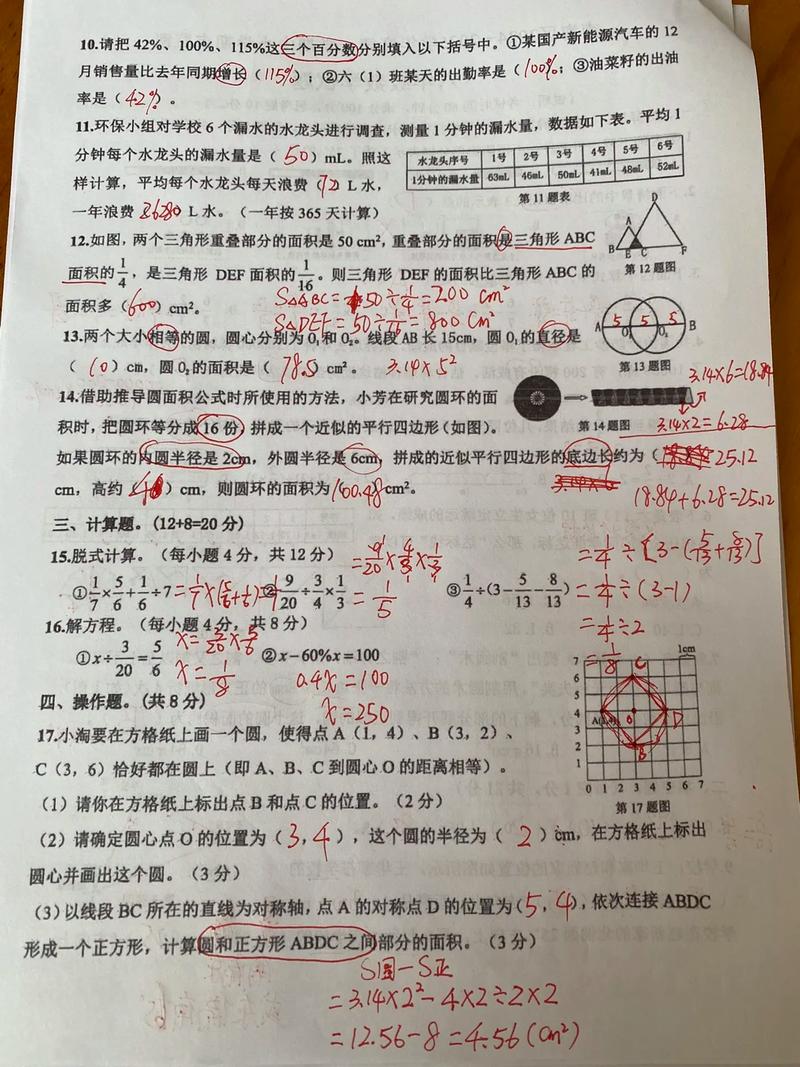 10.请把 42%、100%、115%这三个百分数分别填入以下括号中。①某国产新能源汽车的 12
月销售量比去年同期增长（115%）；②六（1）班某天的出勤率是（100%；③油菜籽的出油
率是（42%）。
11.环保小组对学校 6 个漏水的水龙头进行调查，测量 1 分钟的漏水量，数据如下表。平均 1
分钟每个水龙头的漏水量是（ 50 ）mL。照这
样计算，平均每个水龙头每天浪费（72 L 水，
一年浪费 26280 L 水。（一年按 365 天计算）
水龙头序号 1号 2号 3号 4号 5号 6号
1分钟的漏水量 63mL 46mL 50mL 41mL 48mL 52mL
第 11 题表
12.如图，两个三角形重叠部分的面积是 50 cm²，重叠部分的面积是三角形 ABC
面积的1/4，是三角形 DEF 面积的1/16。则三角形 DEF 的面积比三角形 ABC 的
面积多（600）cm²。
S△ABC = 50÷1/4=200 cm²
S△DEF = 50÷1/16=800 cm²
A D B E C F
第 12 题图
13.两个大小相等的圆，圆心分别为 O₁和 O₂。线段 AB 长 15cm，圆 O₁的直径是
（ 10 ）cm，圆 O₂的面积是（ 78.5 ）cm²。 3.14×5²
A 5 5 5 B O₁ O₂
第 13 题图
14.借助推导圆面积公式时所使用的方法，小芳在研究圆环的面
积时，把圆环等分成 16 份，拼成一个近似的平行四边形（如图）。
如果圆环的内圆半径是 2cm，外圆半径是 6cm，拼成的近似平行四边形的底边长约为（ 25.12
cm，高约（4）cm，则圆环的面积为（100.48）cm²。
第 14 题图
3.14×6=18.84
3.14×2=6.28
18.84+6.28=25.12
三、计算题。(12+8=20 分)
15.脱式计算。（每小题 4 分，共 12 分）
①1/7×5/6+1/6÷7 =1/7×(5/6+1/6)
②9/20÷3/4×1/3
=9/20×4/3×1/3
=1/5
③1/4÷(3−5/13−8/13)
=1/4÷[3-(5/13+8/13)]
=1/4÷(3-1)
=1/4÷2
=1/8
16.解方程。（每小题 4 分，共 8 分）
①x÷3/20=5/6
x=3/20×5/6
x=1/8
②x−60%x=100
0.4x=100
x=250
四、操作题。(共 8 分)
17.小淘要在方格纸上画一个圆，使得点 A（1，4）、B（3，2）、
C（3，6）恰好都在圆上（即 A、B、C 到圆心 O 的距离相等）。
（1）请你在方格纸上标出点 B 和点 C 的位置。（2 分）
（2）请确定圆心点 O 的位置为（3,4），这个圆的半径为（ 2 ）cm，在方格纸上标出
圆心并画出这个圆。（3 分）
（3）以线段 BC 所在的直线为对称轴，点 A 的对称点 D 的位置为（5，4），依次连接 ABDC
形成一个正方形，计算圆和正方形 ABDC 之间部分的面积。（3 分）
1cm
7
6
5
4
3
2
1
0 1 2 3 4 5 6 7
A(1,4) C D B O
第 17 题图
S圆-S正
=3.14×2²-4×2÷2×2
=12.56-8=4.56(cm²)